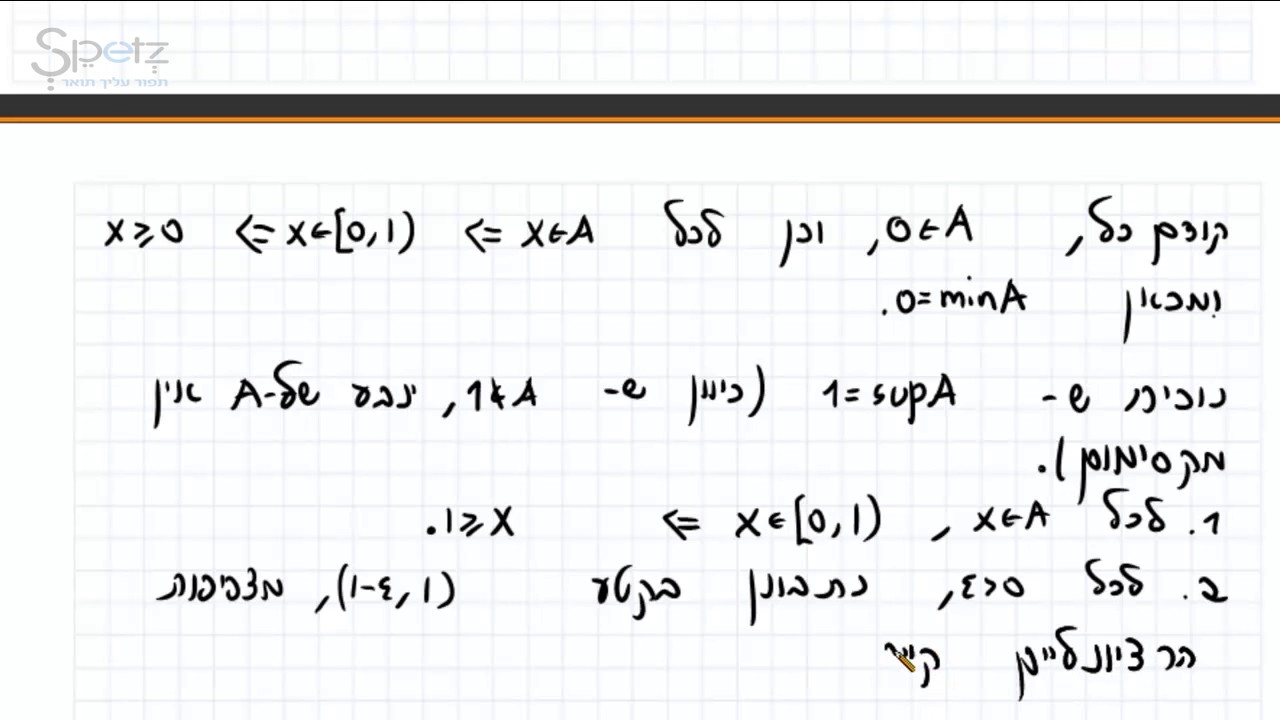 Spetz
תפור עליך תואר
קודם כל, 0∈A, וכן לכל x∈A => x∈[0,1) => x≥0
ומכאן 0=minA.
נוכיח ש- 1=supA (כיוון ש- 1∉A, ינבע שלA- אין
מקסימום).
1. לכל x∈A, x∈[0,1) => 1≥x.
2. לכל ε>0, נתבונן בקטע (1-ε,1), מצפיפות
הרציונליים קיי